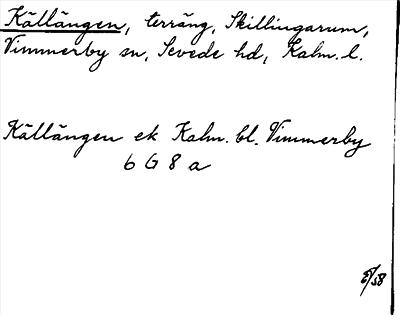 Källängen, terräng, Skillingarum,
Vimmerby sn, Sevede hd, Kalm. l.
Källängen ek Kalm. bl. Vimmerby
6 G 8 a